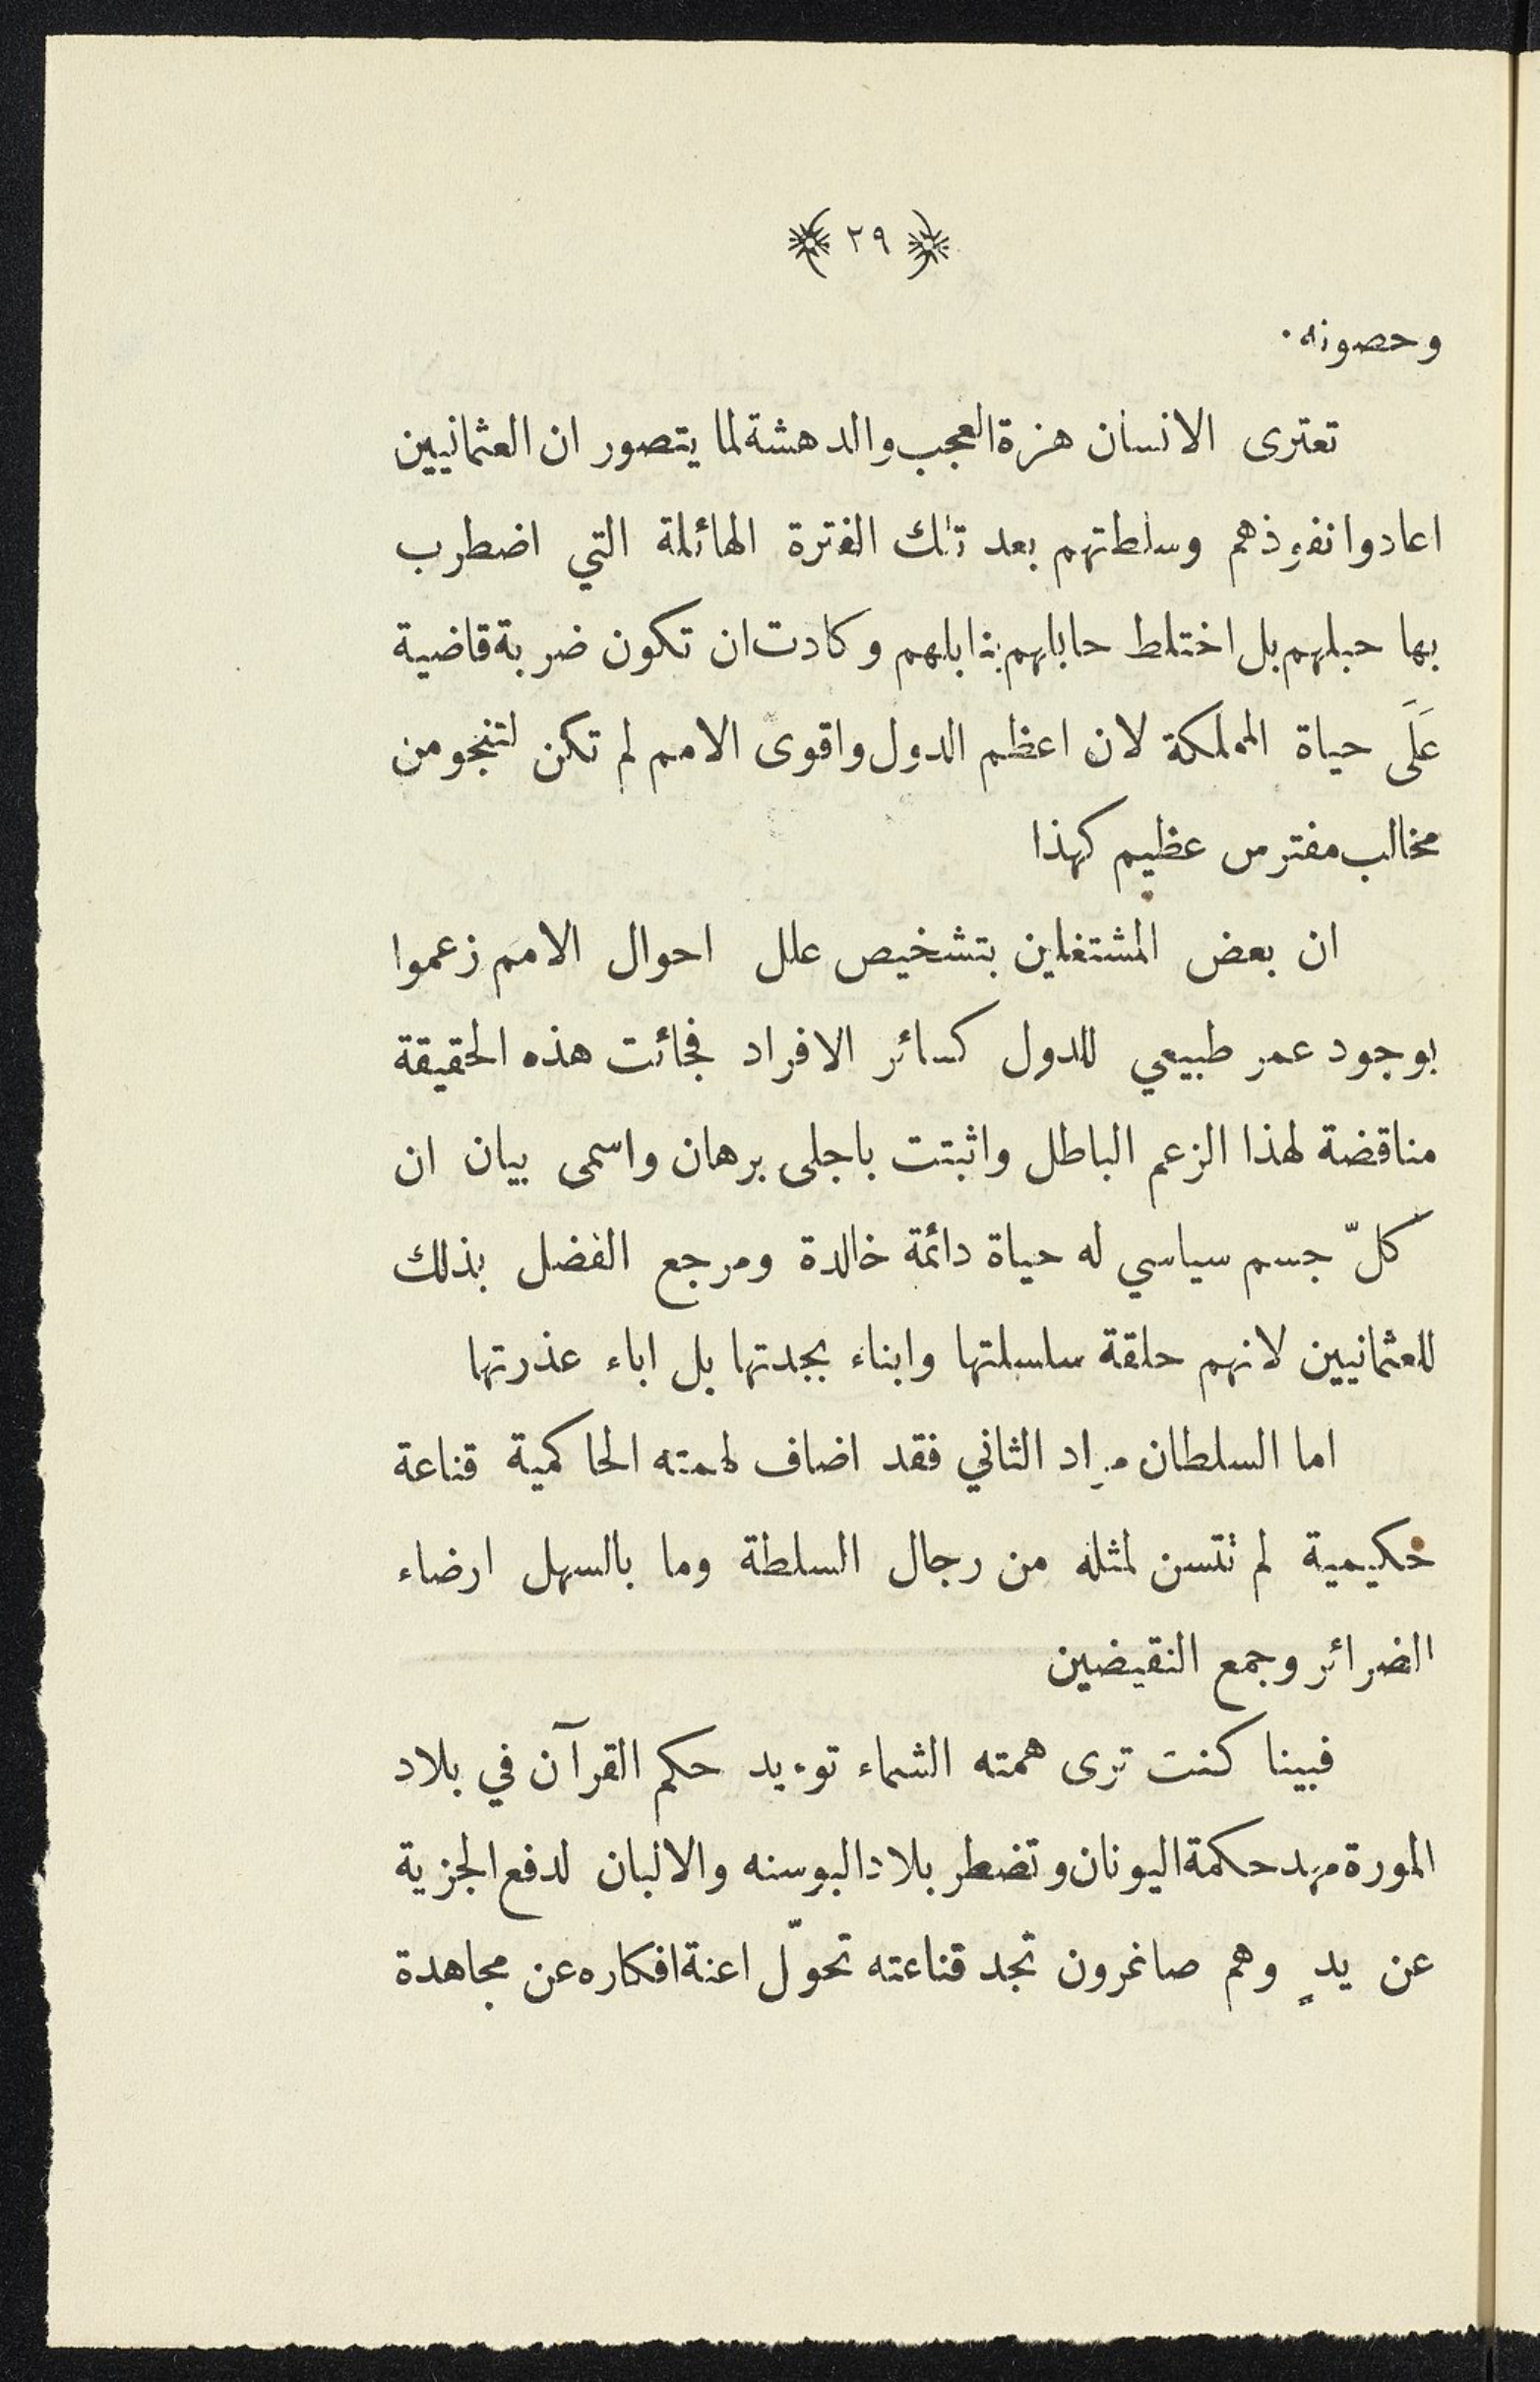 ٢٩
وحصونه.
تعترى الانسان هزة العجب والدهشة لما يتصور ان العثمانيين
اعادوا نفوذهم وسلطتهم بعد تلك الفترة الهائلة التي اضطرب
بها حبلهم بل اختلط حابلهم بنابلهم وكادت ان تكون ضربة قاضية
عَلَى حياة المملكة لان اعظم الدول واقوى الامم لم تكن لتنجو من
مخالب مفترس عظيم كهذا
ان بعض المشتغلين بتشخيص علل احوال الامم زعموا
بوجود عمر طبيعي للدول كسائر الافراد فجائت هذه الحقيقة
مناقضة لهذا الزعم الباطل واثبتت باجلى برهان واسمى بيان ان
كلّ جسم سياسي له حياة دائمة خالدة ومرجع الفضل بذلك
للعثمانيين لانهم حلقة سلسلتها وابناء بجدتها بل اباء عذرتها
اما السلطان مراد الثاني فقد اضاف لهمته الحاكمية قناعة
حكيمية لم تتسن لمثله من رجال السلطة وما بالسهل ارضاء
الضرائر وجمع النقيضين
فبينا كنت ترى همته الشماء توءيد حكم القرآن في بلاد
المورة مهد حكمة اليونان وتضطر بلاد البوسنه والالبان لدفع الجزية
عن يدٍ وهم صاغرون تجد قناعته تحوّل اعنة افكاره عن مجاهدة